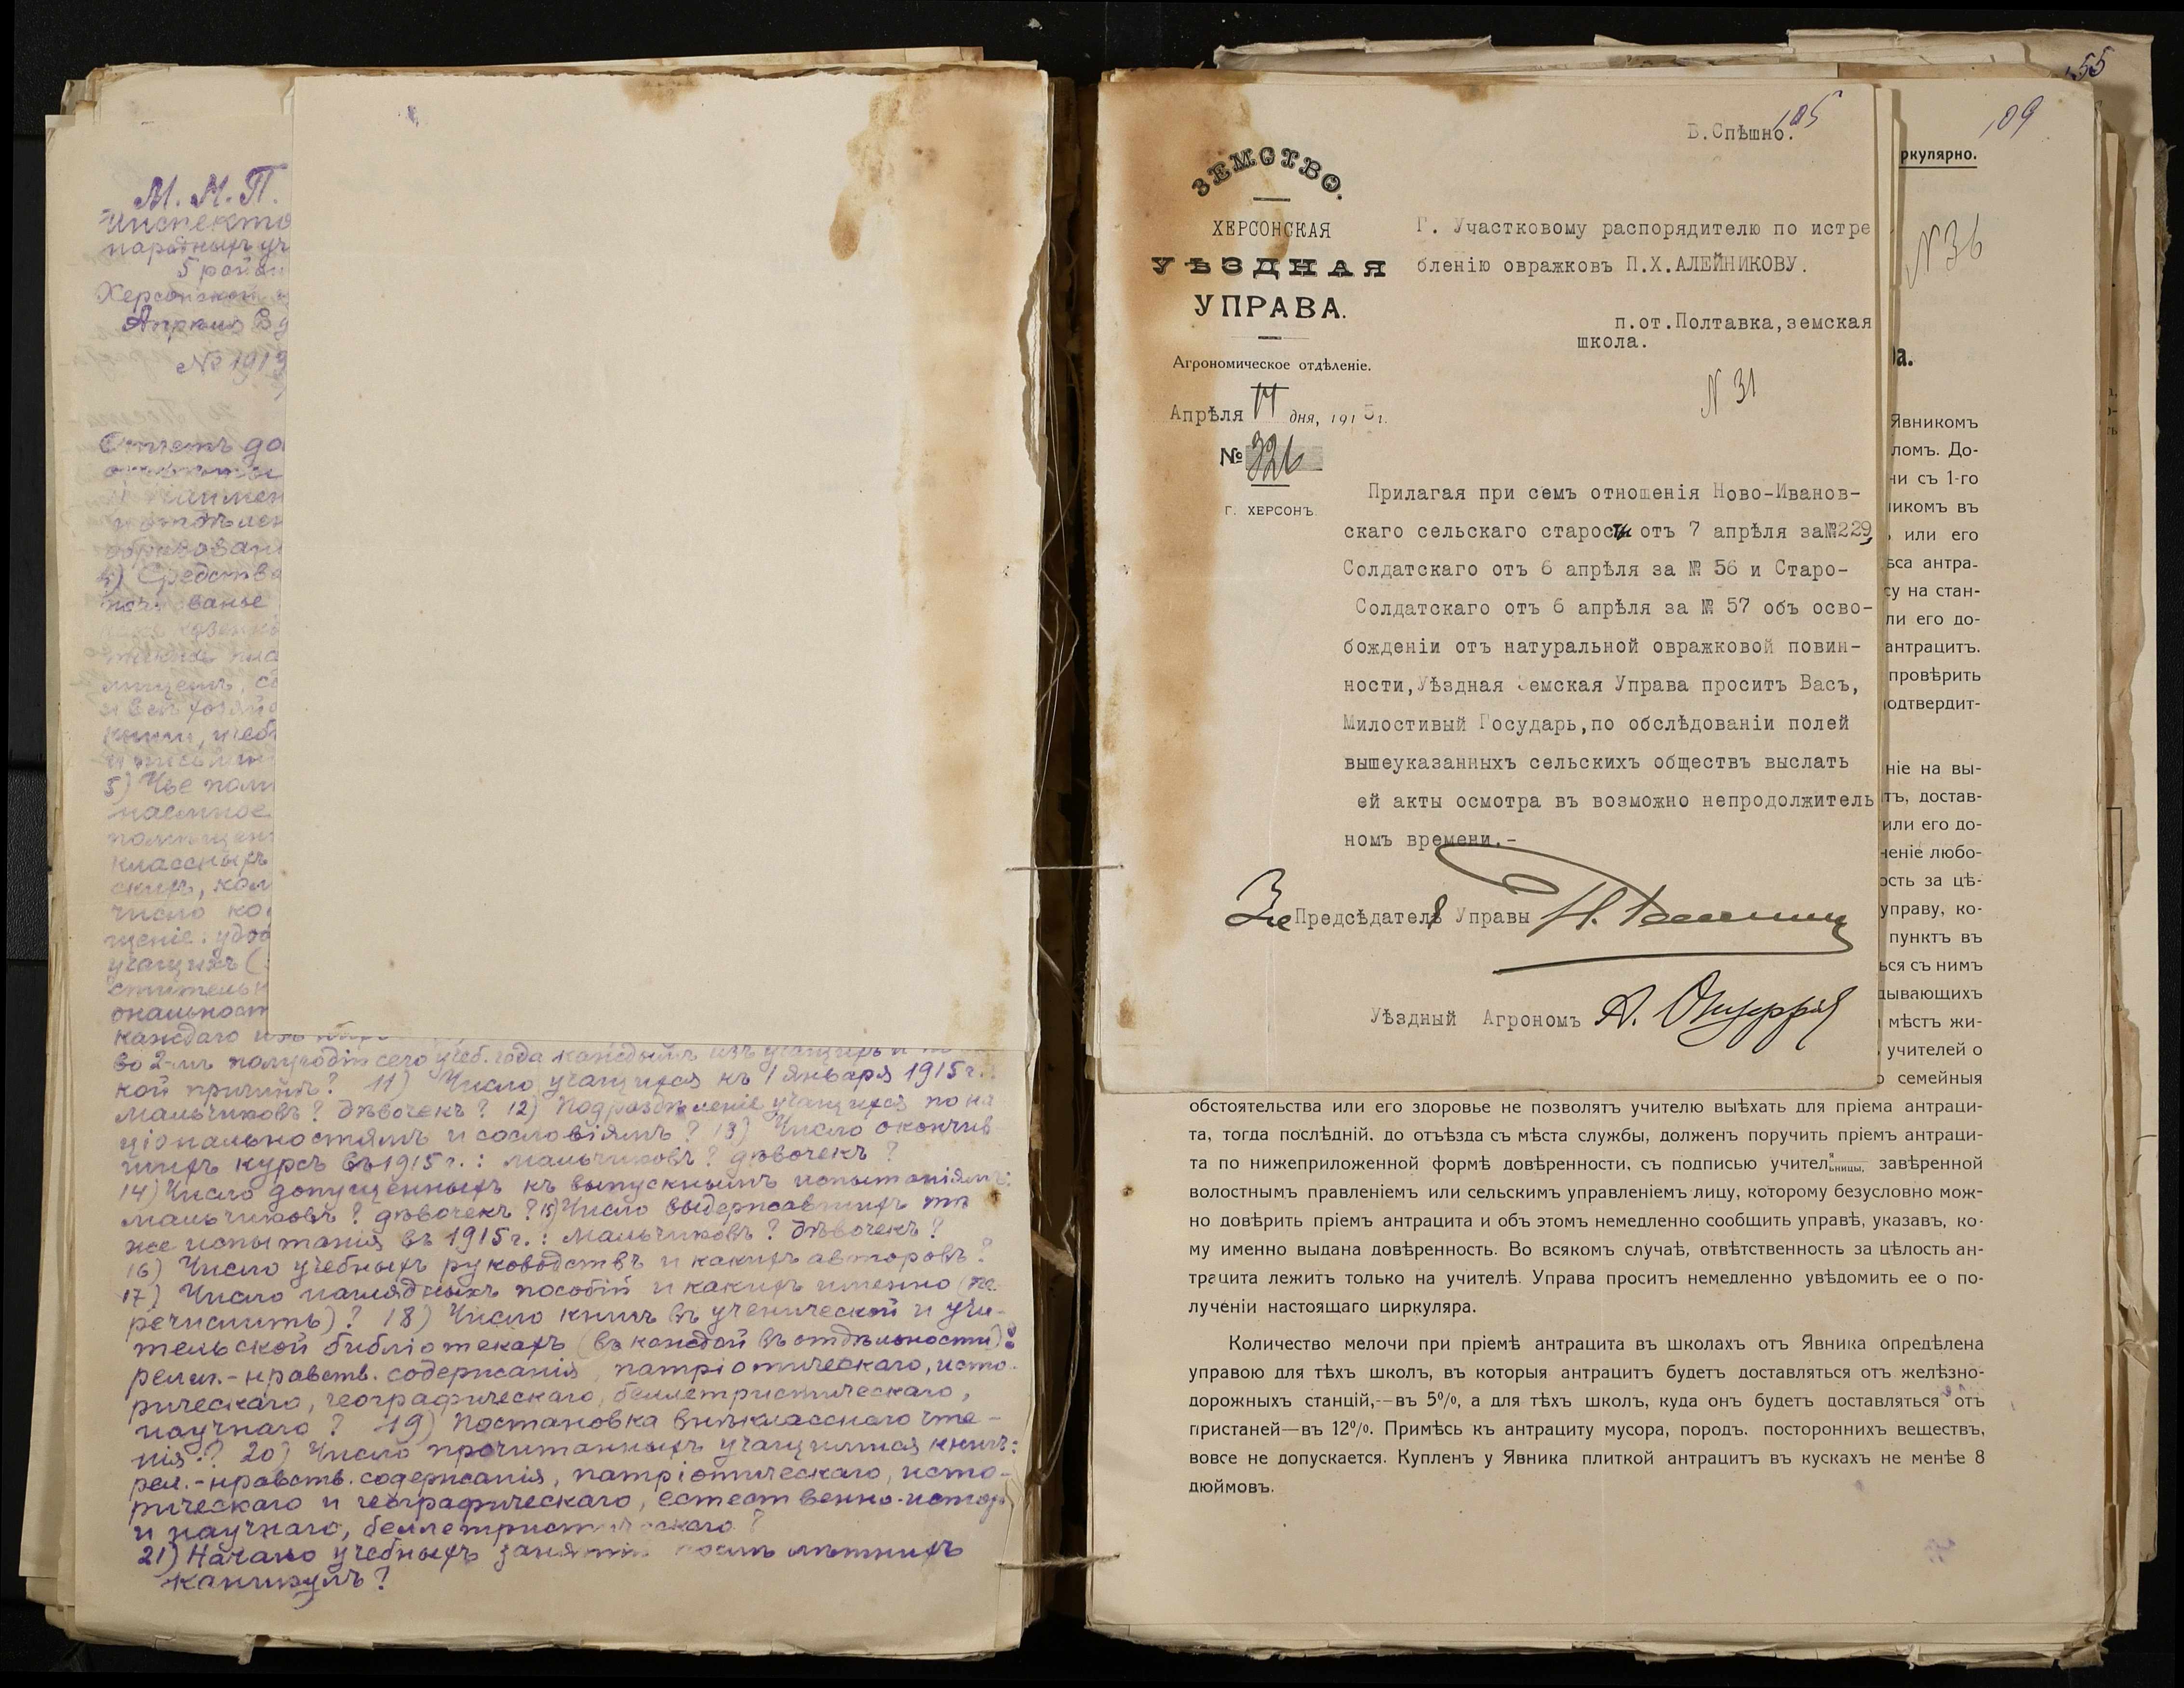 М. Н. П.
Инспекто
народныхъ уч
5 райан
Херсонской
Апрѣля
№ 1919
4) Средства
5) Чье пом
наемное
помѣщен
классныхъ
число ко
щеніе: удоб
учащихъ (
каждаго изъ
во 2-мъ полугодіи сего учеб. года каждымъ изъ учащихъ и
кой причинѣ? 11) Число учащихся къ 1 января 1915 г.:
мальчиковъ? дѣвочекъ? 12) Подраздѣленіе учащихся по на
ціональностямъ и сословіямъ? 13) Число окончив
шихъ курсъ въ 1915 г.: мальчиковъ? дѣвочекъ?
14) Число допущенныхъ къ выпускнымъ испытаніямъ:
мальчиковъ? дѣвочекъ? 15) Число выдержавшихъ тѣ
же испытанія въ 1915 г.: мальчиковъ? дѣвочекъ?
16) Число учебныхъ руководствъ и какихъ авторовъ?
17) Число наглядныхъ пособій и какихъ именно (пе-
речислить)? 18) Число книгъ въ ученической и учи-
тельской библіотекахъ (въ каждой въ отдѣльности):
религ.-нравств. содержанія, патріотическаго, исто-
рическаго, географическаго, беллетристическаго,
научнаго? 19) Постановка внѣкласснаго чте-
нія? 20) Число прочитанныхъ учащимися книгъ:
рел.-нравств. содержанія, патріотическаго, исто-
рическаго и географическаго, естественно-истор.
и научнаго, беллетристическаго?
21) Начало учебныхъ занятій послѣ лѣтнихъ
каникулъ?
55
109
ркулярно.
N 36
105
В.Спѣшно.
ЗЕМСТВО.
ХЕРСОНСКАЯ
УѢЗДНАЯ
УПРАВА.
Агрономическое отдѣленіе.
Апрѣля 14 дня, 1915 г.
№ 326
Г. ХЕРСОНЪ.
Г. Участковому распорядителю по истре
бленію овражковъ П.Х.АЛЕЙНИКОВУ.
п.от.Полтавка,земская
школа.
N 31
Прилагая при семъ отношенія Ново-Иванов-
скаго сельскаго старосты отъ 7 апрѣля за№229,
Солдатскаго отъ 6 апрѣля за № 56 и Старо-
Солдатскаго отъ 6 апрѣля за № 57 объ осво-
божденіи отъ натуральной овражковой повин-
ности,Уѣздная Земская Управа проситъ Васъ,
Милостивый Государь,по обслѣдованіи полей
вышеуказанныхъ сельскихъ обществъ выслать
ей акты осмотра въ возможно непродолжитель
номъ времени.-
За Предсѣдателя Управы
Уѣздный Агрономъ
а.
Явникомъ
ломъ. До-
ни съ 1-го
никомъ въ
или его
ьса антра-
су на стан-
ли его до-
антрацитъ.
провѣрить
подтвердит-
ніе на вы-
тъ, достав-
или его до-
неніе любо-
ость за цѣ-
управу, ко-
пунктъ въ
ься съ нимъ
дывающихъ
мѣстъ жи-
учителей о
семейныя
обстоятельства или его здоровье не позволятъ учителю выѣхать для пріема антраци-
та, тогда послѣдній. до отъѣзда съ мѣста службы, долженъ поручить пріемъ антраци-
та по нижеприложенной формѣ довѣренности, съ подписью учителя ьницы, завѣренной
волостнымъ правленіемъ или сельскимъ управленіемъ лицу, которому безусловно мож-
но довѣрить пріемъ антрацита и объ этомъ немедленно сообщить управѣ, указавъ, ко-
му именно выдана довѣренность. Во всякомъ случаѣ, отвѣтственность за цѣлость ан-
трацита лежитъ только на учителѣ. Управа проситъ немедленно увѣдомить ее о по-
лученіи настоящаго циркуляра.
Количество мелочи при пріемѣ антрацита въ школахъ отъ Явника опредѣлена
управою для тѣхъ школъ, въ которыя антрацитъ будетъ доставляться отъ желѣзно-
дорожныхъ станцій,--въ 5%, а для тѣхъ школъ, куда онъ будетъ доставляться отъ
пристаней—въ 12%. Примѣсь къ антрациту мусора, породъ. постороннихъ веществъ,
вовсе не допускается. Купленъ у Явника плиткой антрацитъ въ кускахъ не менѣе 8
дюймовъ.